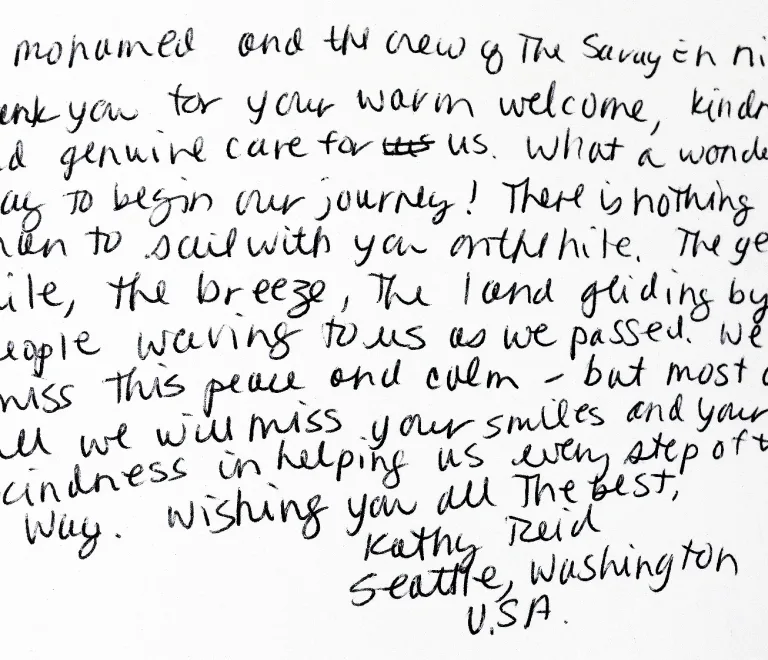 mohamed and the crew of The Savay En ni
enk you for your warm welcome, kindn
d genuine care for us us. What a wonde
ay to begin our journey! There is nothing
han to sail with you on the Nile. The ge
ile, the breeze, The land gliding by
eople waving to us as we passed. We
miss this peace and calm - but most o
all we will miss your smiles and your
kindness in helping us every step of t
way. Wishing you all The best,
Kathy Reid
Seattle, Washington
U.S.A.